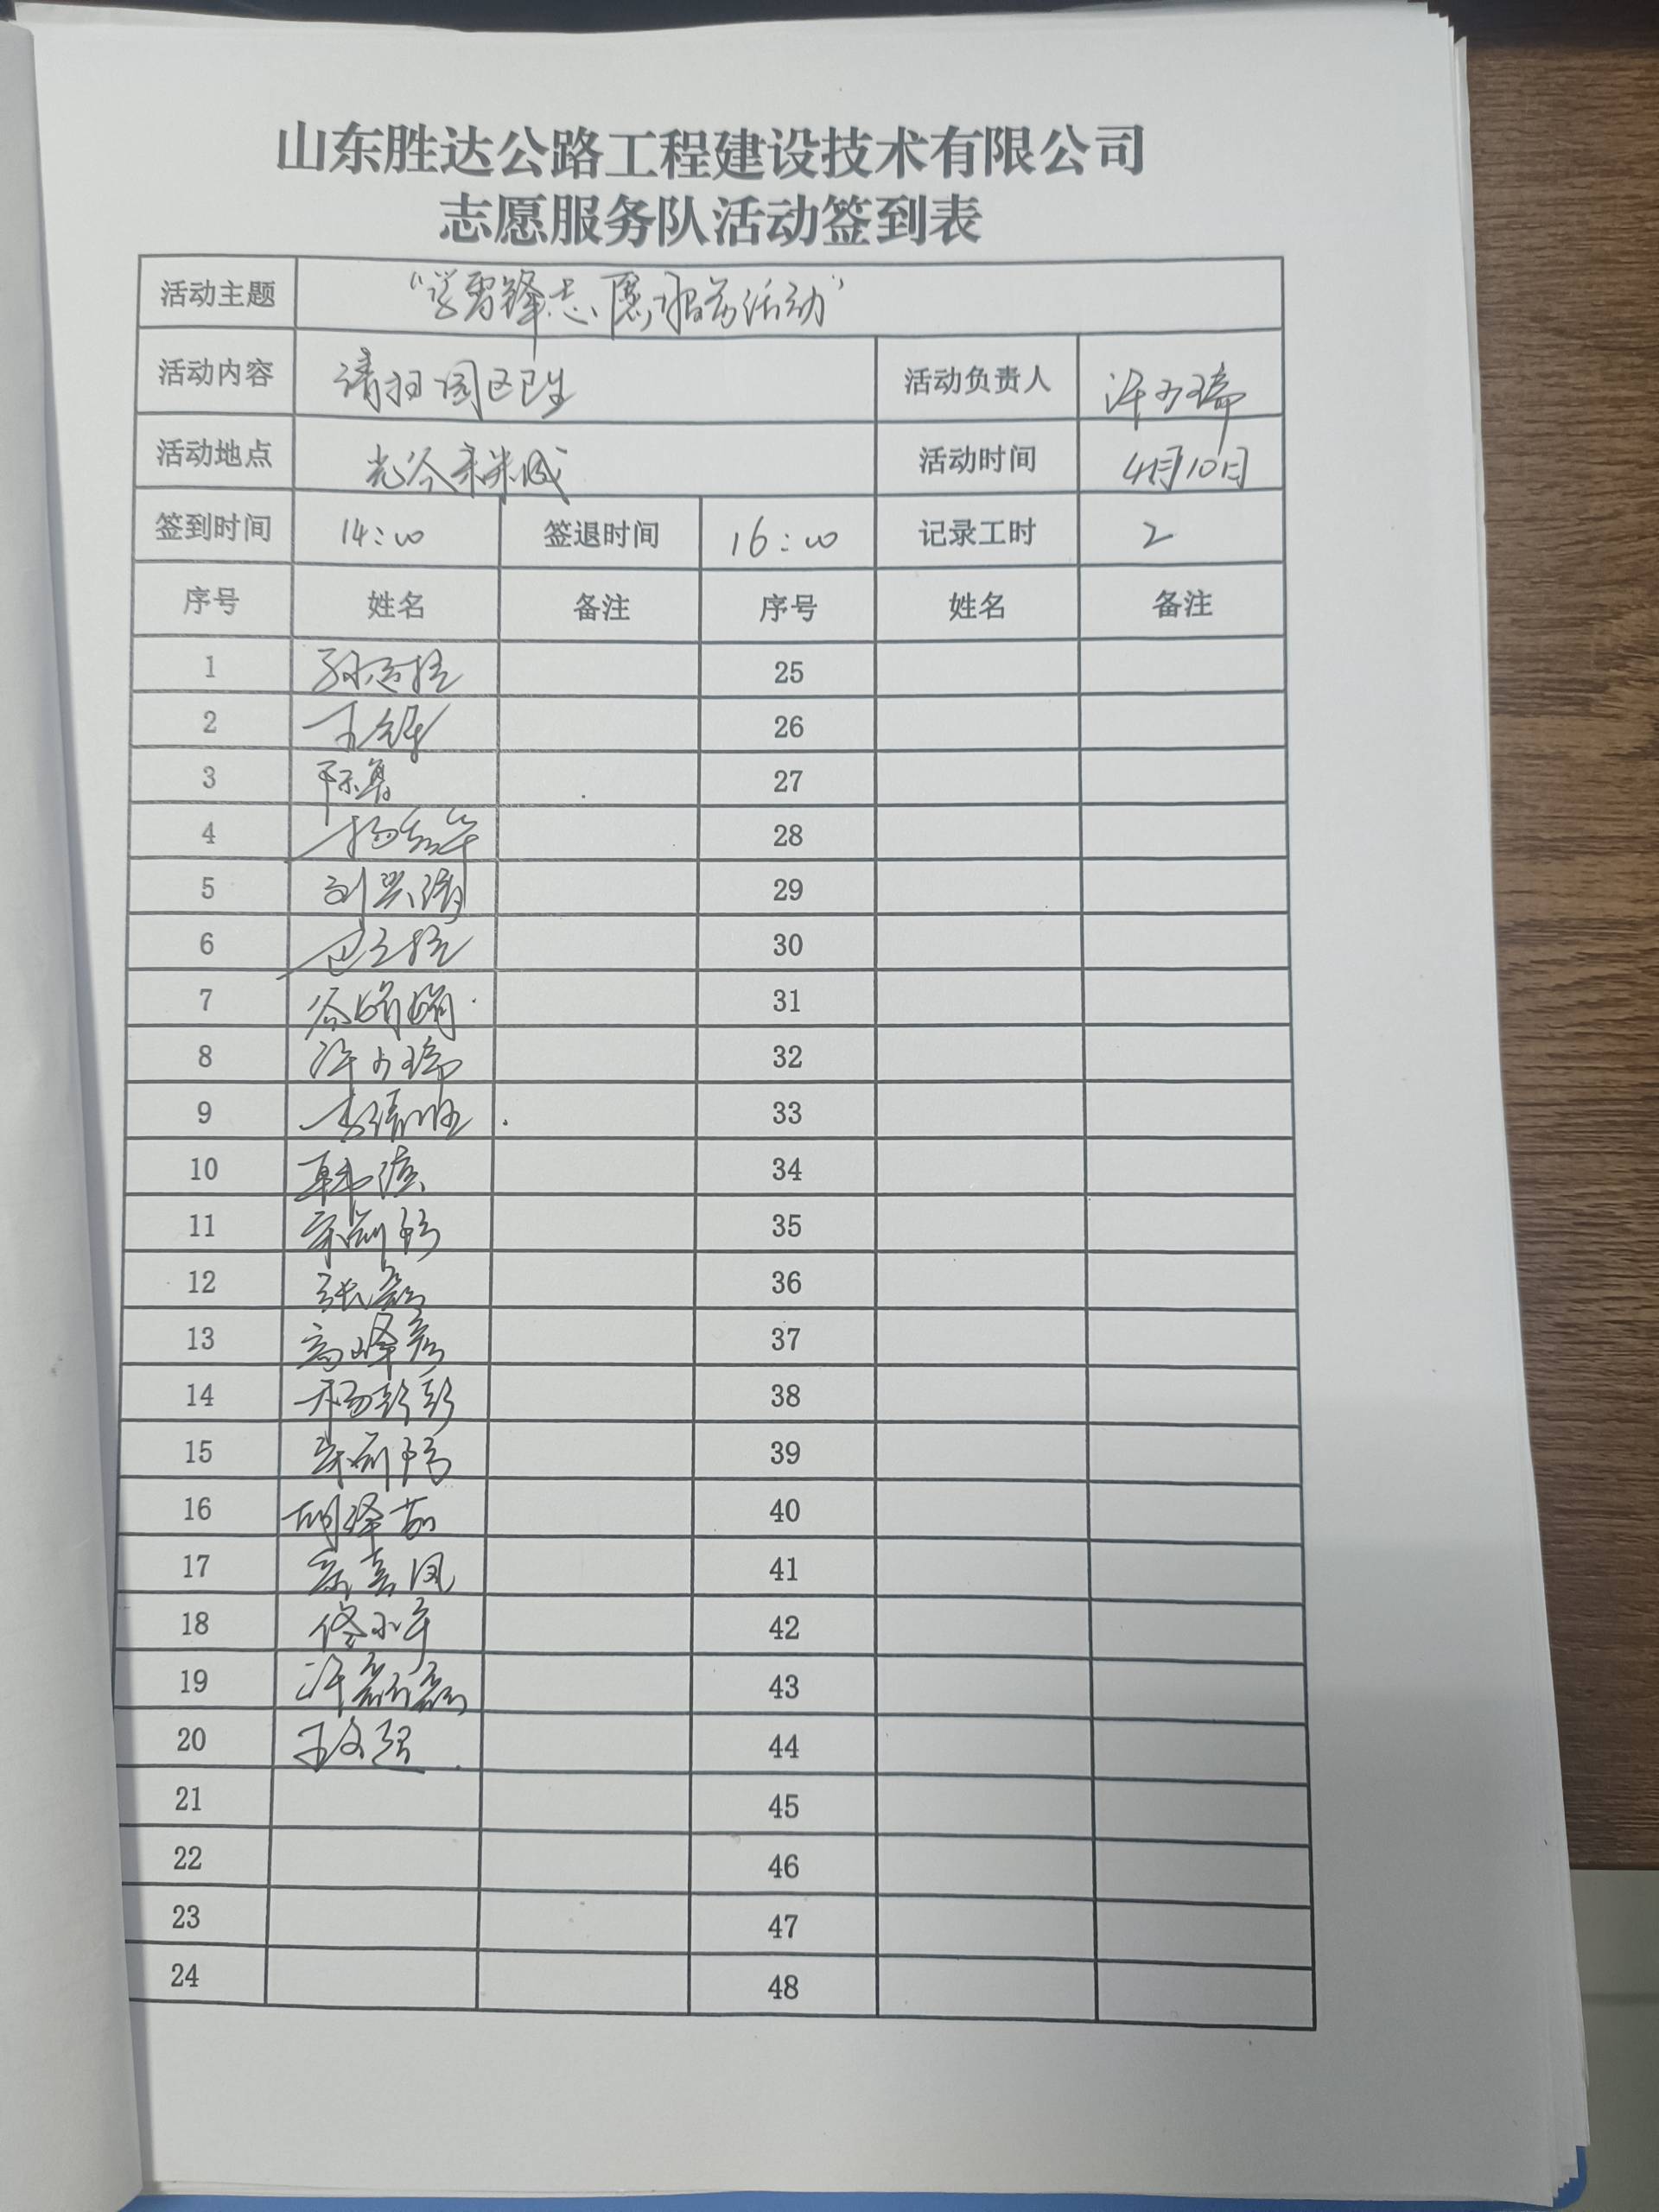 山东胜达公路工程建设技术有限公司
志愿服务队活动签到表
活动主题 “学雷锋志愿服务活动”
活动内容 请扫园区卫生 活动负责人 许少瑞
活动地点 光谷未来城 活动时间 4月10日
签到时间 14:00 签退时间 16:00 记录工时 2
序号 姓名 备注 序号 姓名 备注
1 25
2 王锋 26
3 陈鲁 27
4 28
5 29
6 30
7 谷娟娟 31
8 许少瑞 32
9 33
10 韩 34
11 35
12 张 36
13 高峰 37
14 杨彭彭 38
15 39
16 胡泽茹 40
17 41
18 佟 42
19 许 43
20 王文强 44
21 45
22 46
23 47
24 48